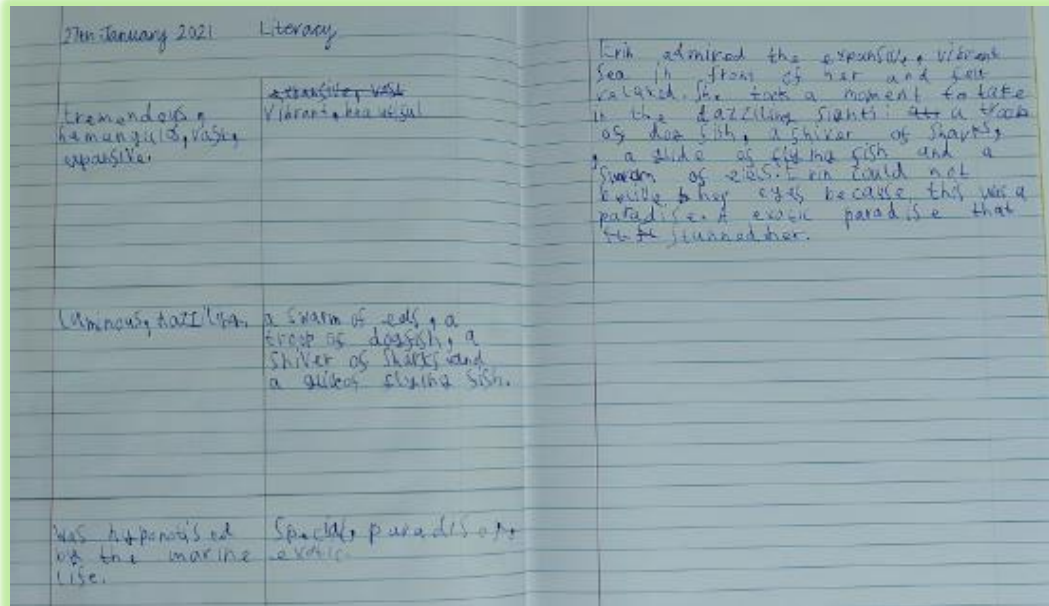 27th January 2021 Literacy
tremendous,
humangulis, vast,
expansive.
expansive, vast
Vibrant, beautiful
Luminous, dazziling.
a swarm of eels, a
troop of dogfish, a
Shiver of sharks and
a glide of flying fish.
was hypnotised
by the marine
life.
Special, paradise,
exotic.
Erin admired the expansive, vibrant
Sea in front of her and felt
relaxed. She took a moment to take
in the dazziling sights: a troop
of dog fish, a shiver of sharks,
, a glide of flying fish and a
Swarm of eles. Erin could not
belive her eyes becasse this was a
paradise. A exotic paradise that
stunned her.